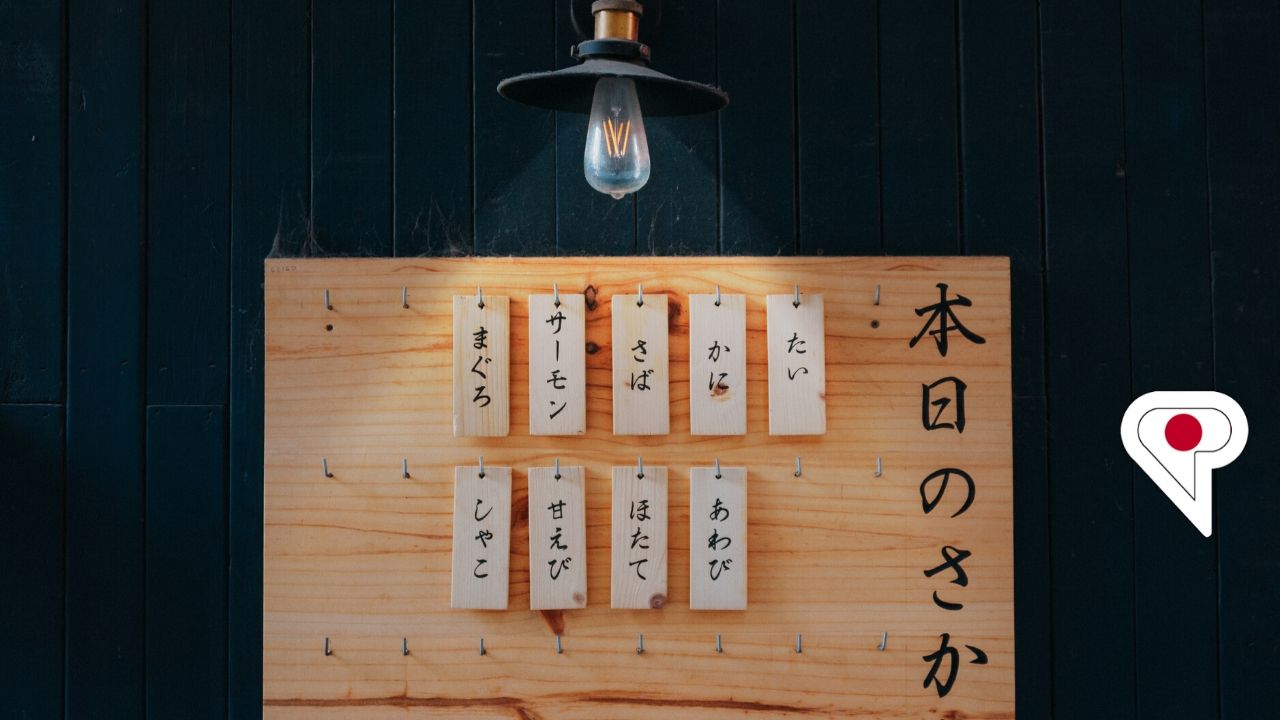 本日のさか
たい
かに
さば
サーモン
まぐろ
あわび
ほたて
甘えび
しゃこ